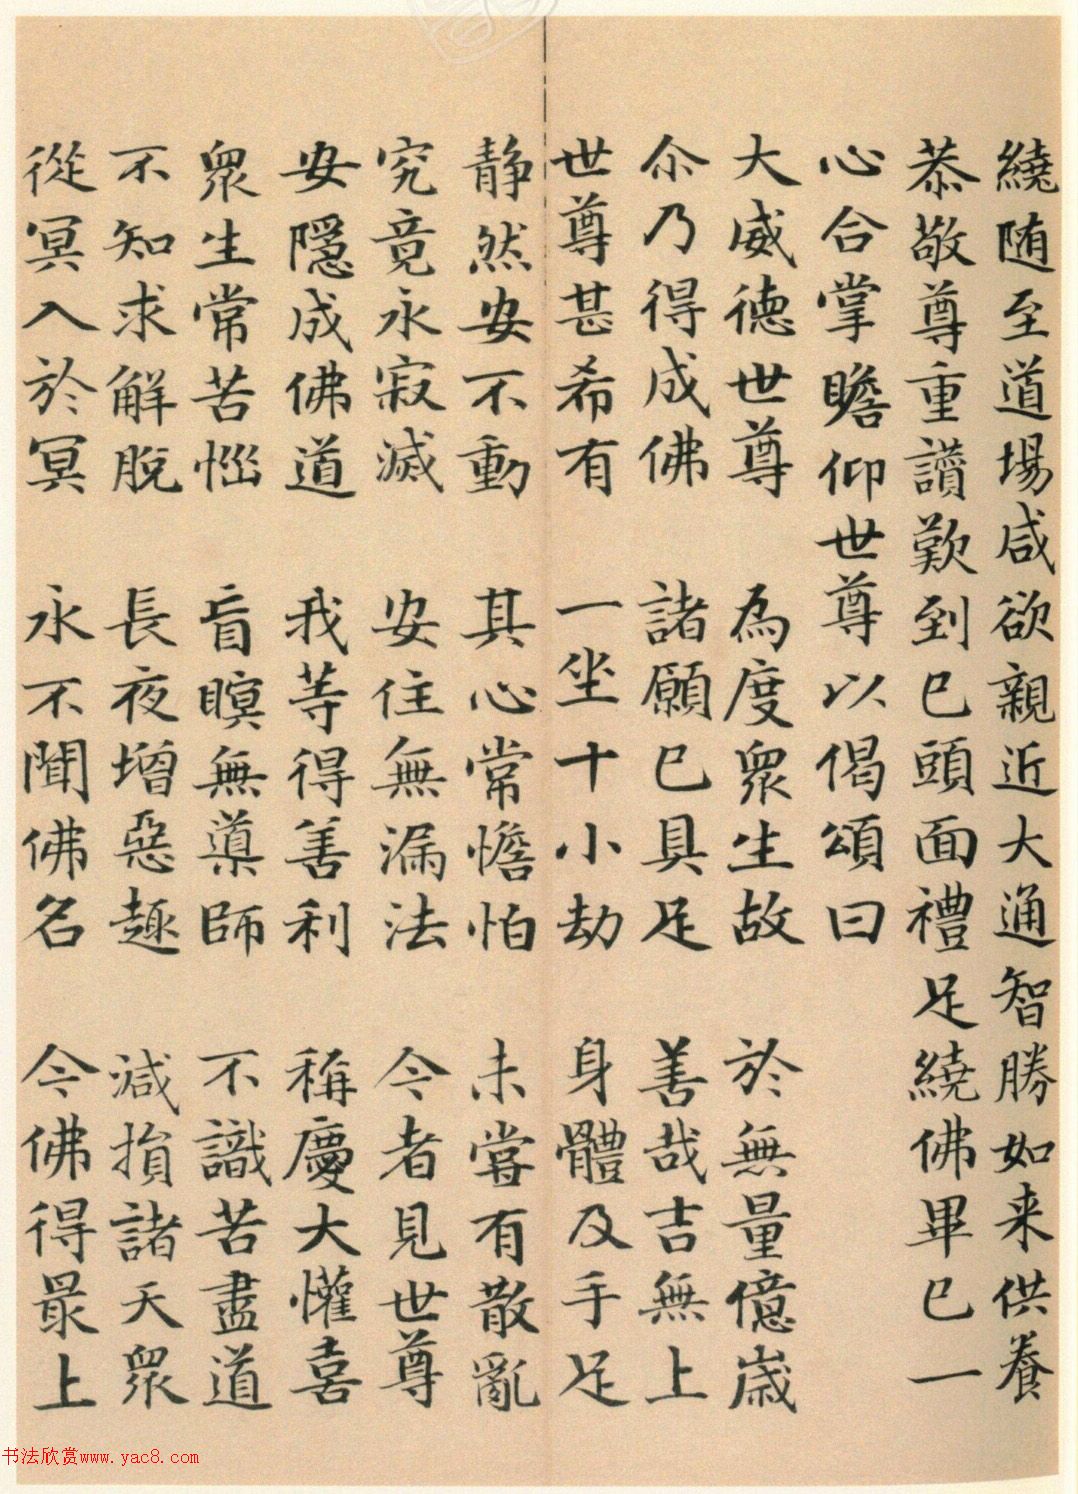 繞随至道場咸欲親近大通智勝如来供養
恭敬尊重讚歎到已頭面禮足繞佛畢已一
心合掌瞻仰世尊以偈頌曰
大威德世尊　為度衆生故　於無量億歲
尒乃得成佛　諸願已具足　善哉吉無上
世尊甚希有　一坐十小劫　身體及手足
静然安不動　其心常憺怕　未甞有散亂
究竟永寂滅　安住無漏法　今者見世尊
安隱成佛道　我等得善利　稱慶大懽喜
衆生常苦惱　盲瞑無導師　不識苦盡道
不知求解脫　長夜增惡趣　減損諸天衆
從冥入於冥　永不聞佛名　今佛得最上
书法欣赏www.yac8.com